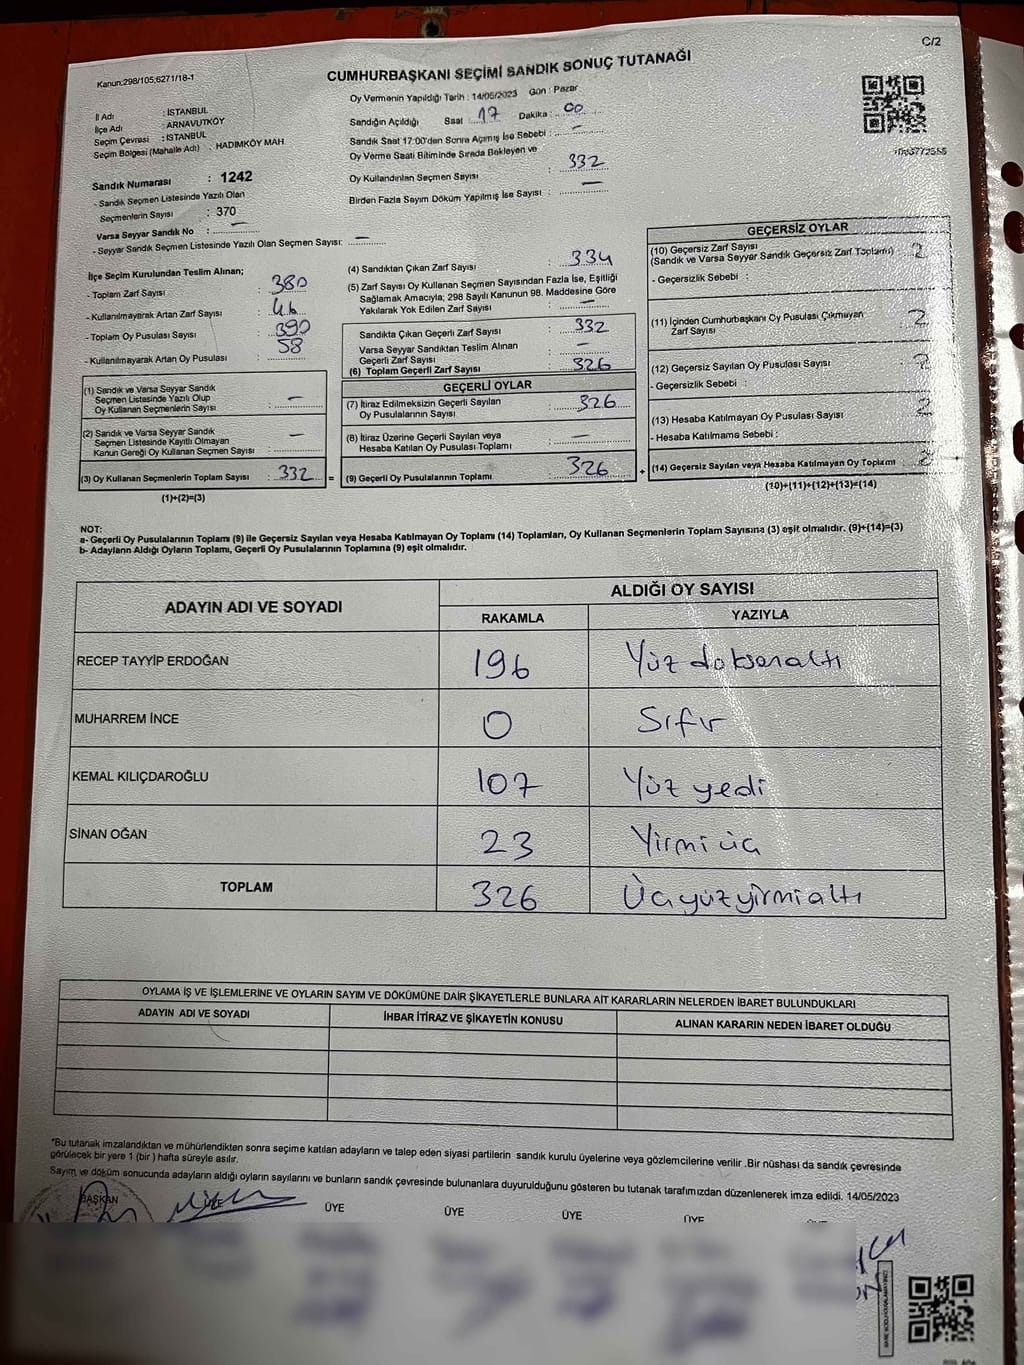 C/2
Kanun:298/105,6271/18-1
CUMHURBAŞKANI SEÇİMİ SANDIK SONUÇ TUTANAĞI
İl Adı : İSTANBUL
İlçe Adı : ARNAVUTKÖY
Seçim Çevresi : İSTANBUL
Seçim Bölgesi (Mahalle Adı) : HADIMKÖY MAH
Sandık Numarası : 1242
- Sandık Seçmen Listesinde Yazılı Olan
Seçmenlerin Sayısı : 370
Varsa Seyyar Sandık No : —
- Seyyar Sandık Seçmen Listesinde Yazılı Olan Seçmen Sayısı: —
Oy Vermenin Yapıldığı Tarih : 14/05/2023 Gün : Pazar
Sandığın Açıldığı Saat : 17 Dakika : 00
Sandık Saat 17:00'den Sonra Açımış İse Sebebi : —
Oy Verme Saati Bitiminde Sırada Bekleyen ve
Oy Kullandırılan Seçmen Sayısı : 332
Birden Fazla Sayım Döküm Yapılmış İse Sayısı : —
İlçe Seçim Kurulundan Teslim Alınan;
- Toplam Zarf Sayısı : 380
- Kullanılmayarak Artan Zarf Sayısı : 46
- Toplam Oy Pusulası Sayısı : 390
- Kullanılmayarak Artan Oy Pusulası : 58
(1) Sandık ve Varsa Seyyar Sandık
Seçmen Listesinde Yazılı Olup
Oy Kullanan Seçmenlerin Sayısı : —
(2) Sandık ve Varsa Seyyar Sandık
Seçmen Listesinde Kayıtlı Olmayan
Kanun Gereği Oy Kullanan Seçmen Sayısı : —
(3) Oy Kullanan Seçmenlerin Toplam Sayısı : 332 =
(1)+(2)=(3)
(4) Sandıktan Çıkan Zarf Sayısı : 334
(5) Zarf Sayısı Oy Kullanan Seçmen Sayısından Fazla İse, Eşitliği
Sağlamak Amacıyla; 298 Sayılı Kanunun 98. Maddesine Göre
Yakılarak Yok Edilen Zarf Sayısı : —
Sandıkta Çıkan Geçerli Zarf Sayısı : 332
Varsa Seyyar Sandıktan Teslim Alınan
Geçerli Zarf Sayısı : —
(6) Toplam Geçerli Zarf Sayısı : 326
GEÇERLİ OYLAR
(7) İtiraz Edilmeksizin Geçerli Sayılan
Oy Pusulalarının Sayısı : 326
(8) İtiraz Üzerine Geçerli Sayılan veya
Hesaba Katılan Oy Pusulası Toplamı : —
(9) Geçerli Oy Pusulalarının Toplamı : 326 +
GEÇERSİZ OYLAR
(10) Geçersiz Zarf Sayısı
(Sandık ve Varsa Seyyar Sandık Geçersiz Zarf Toplamı) :
- Geçersizlik Sebebi :
(11) İçinden Cumhurbaşkanı Oy Pusulası Çıkmayan
Zarf Sayısı :
(12) Geçersiz Sayılan Oy Pusulası Sayısı :
- Geçersizlik Sebebi :
(13) Hesaba Katılmayan Oy Pusulası Sayısı :
- Hesaba Katılmama Sebebi :
(14) Geçersiz Sayılan veya Hesaba Katılmayan Oy Toplamı :
(10)+(11)+(12)+(13)=(14)
NOT:
a- Geçerli Oy Pusulalarının Toplamı (9) ile Geçersiz Sayılan veya Hesaba Katılmayan Oy Toplamı (14) Toplamları, Oy Kullanan Seçmenlerin Toplam Sayısına (3) eşit olmalıdır. (9)+(14)=(3)
b- Adayların Aldığı Oyların Toplamı, Geçerli Oy Pusulalarının Toplamına (9) eşit olmalıdır.
ADAYIN ADI VE SOYADI ALDIĞI OY SAYISI
RAKAMLA YAZIYLA
RECEP TAYYİP ERDOĞAN 196 Yüz doksanaltı
MUHARREM İNCE 0 Sıfır
KEMAL KILIÇDAROĞLU 107 Yüz yedi
SİNAN OĞAN 23 Yirmi üç
TOPLAM 326 Üçyüzyirmialtı
OYLAMA İŞ VE İŞLEMLERİNE VE OYLARIN SAYIM VE DÖKÜMÜNE DAİR ŞİKAYETLERLE BUNLARA AİT KARARLARIN NELERDEN İBARET BULUNDUKLARI
ADAYIN ADI VE SOYADI İHBAR İTİRAZ VE ŞİKAYETİN KONUSU ALINAN KARARIN NEDEN İBARET OLDUĞU
*Bu tutanak imzalandıktan ve mühürlendikten sonra seçime katılan adayların ve talep eden siyasi partilerin sandık kurulu üyelerine veya gözlemcilerine verilir .Bir nüshası da sandık çevresinde
görülecek bir yere 1 (bir ) hafta süreyle asılır.
Sayım ve döküm sonucunda adayların aldığı oyların sayılarını ve bunların sandık çevresinde bulunanlara duyurulduğunu gösteren bu tutanak tarafımızdan düzenlenerek imza edildi. 14/05/2023
BAŞKAN ÜYE ÜYE ÜYE ÜYE ÜYE